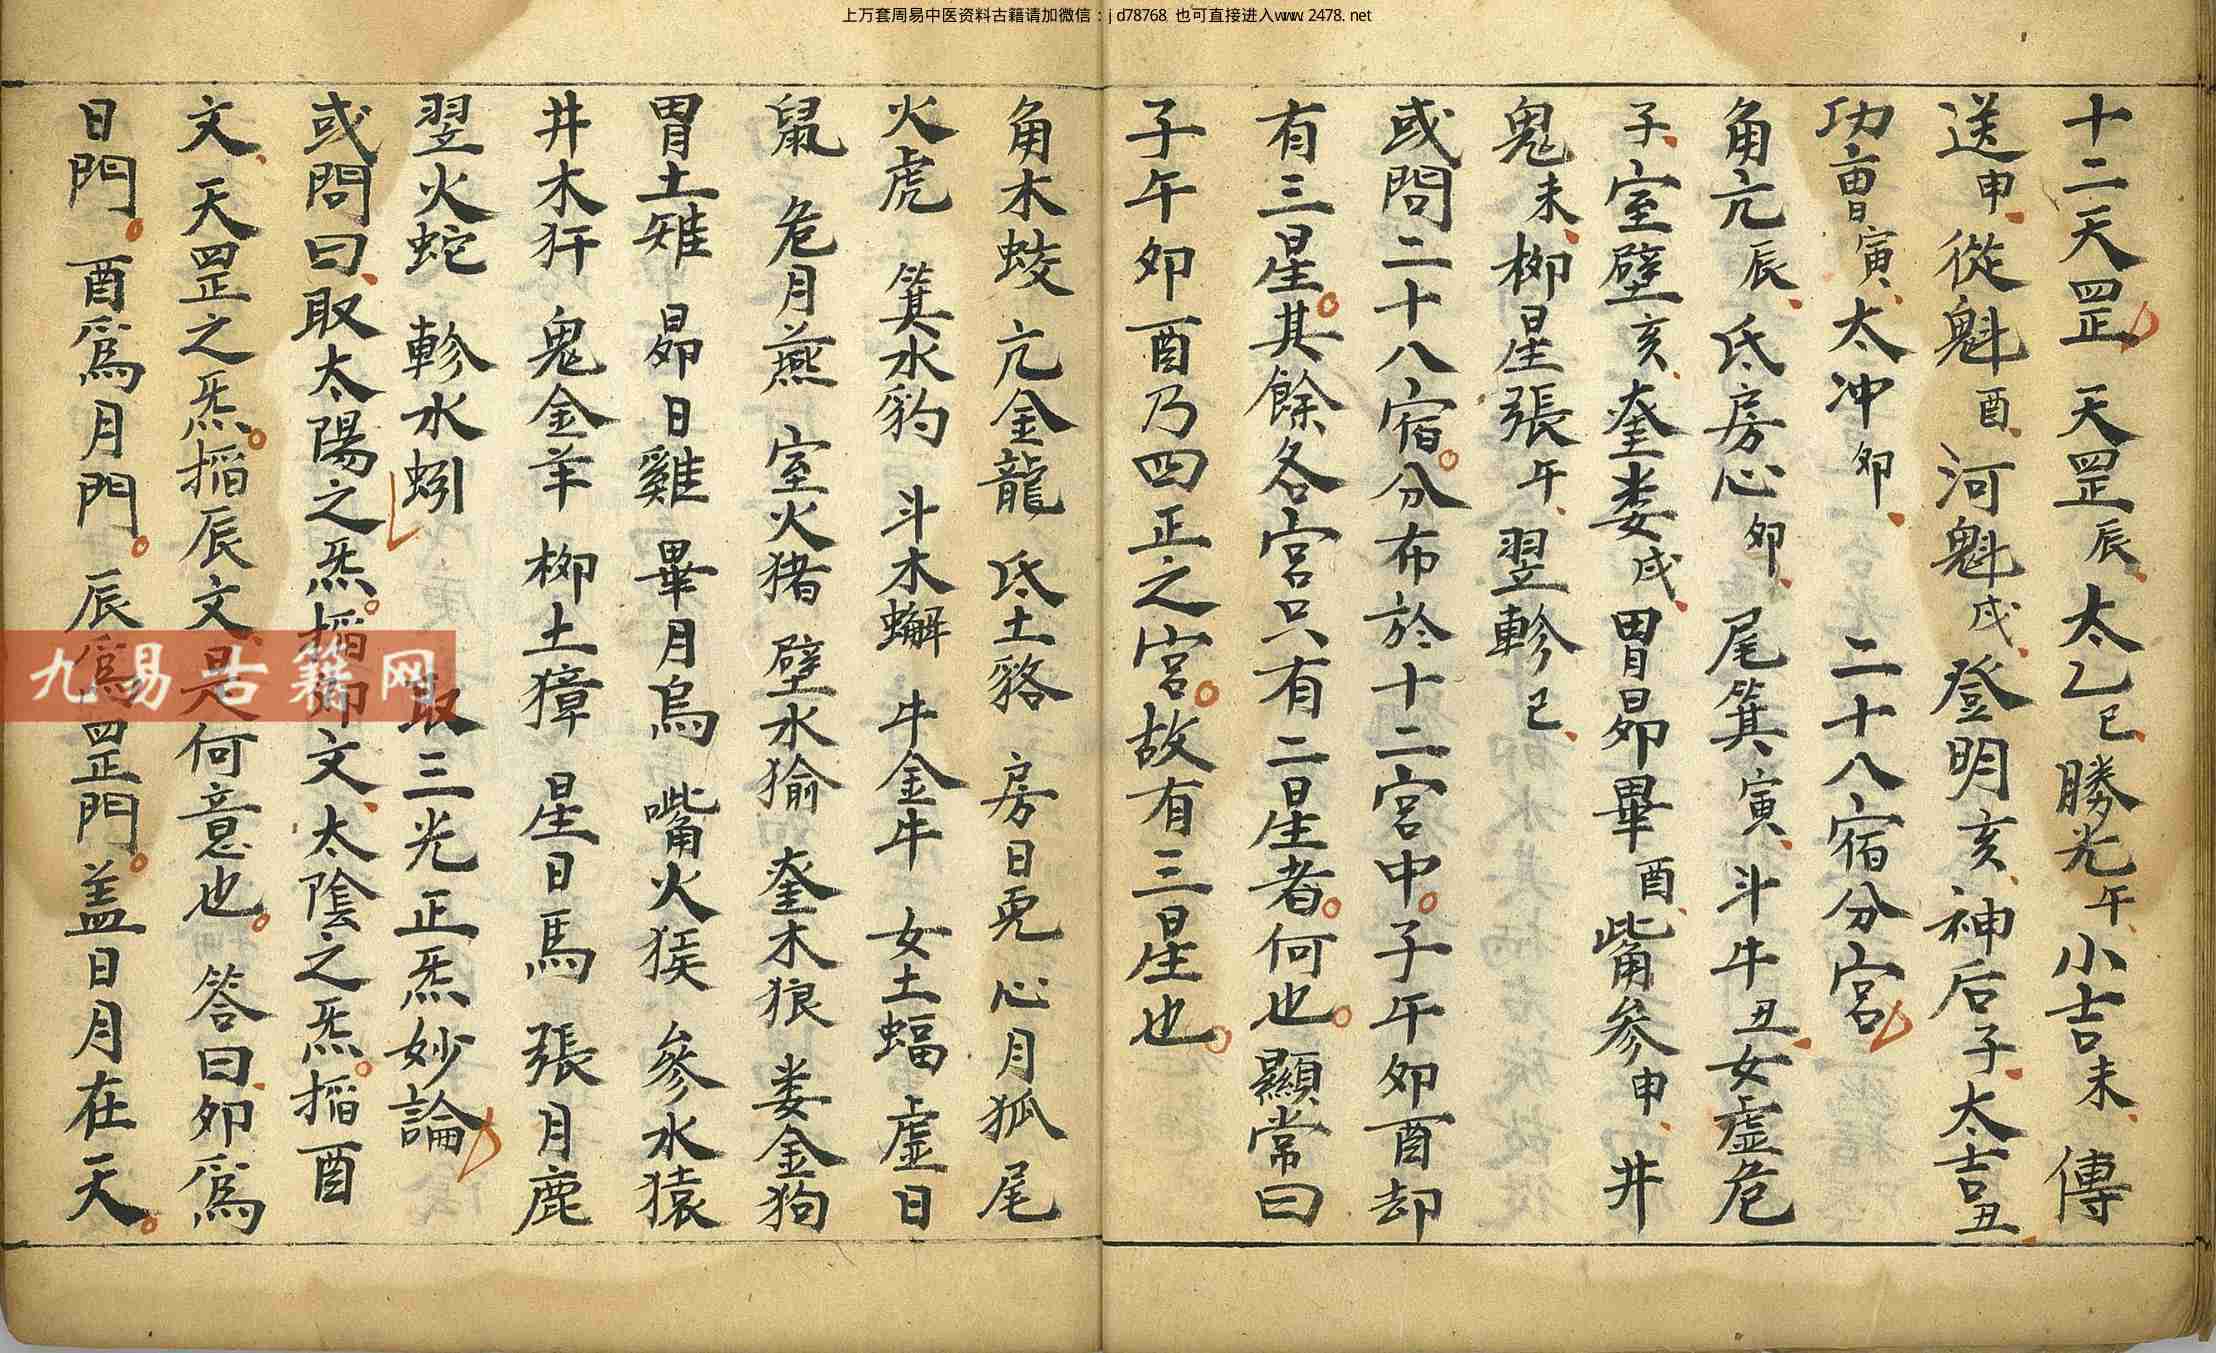 上万套周易中医资料古籍请加微信：jd78768 也可直接进入www.2478.net
十二天罡 天罡辰太乙巳勝光午小吉未 傳
送申從魁酉河魁戌登明亥神后子太吉丑
功曹寅太冲卯 二十八宿分宮
角亢辰 氐房心卯 尾箕寅斗牛丑女虛危
子室壁亥奎娄戌胃昴畢酉觜參申 井
鬼未柳星張午 翌軫巳
或問二十八宿分布於十二宮中子午卯酉却
有三星其餘各宮只有二星者何也 顯常曰
子午卯酉乃四正之宮故有三星也
角木蛟 亢金龍 氐土貉 房日兎 心月狐 尾
火虎 箕水豹 斗木蠏 牛金牛 女土蝠 虛日
鼠 危月燕 室火猪 壁水㺄 奎木狼 娄金狗
胃土雉 昴日雞 畢月烏 嘴火猴 參水猿
井木犴 鬼金羊 柳土獐 星日馬 張月鹿
翌火蛇 軫水蚓 取三光正炁妙論
或問曰取太陽之炁搯卯文太陰之炁搯酉
文天罡之炁搯辰文是何意也 答曰卯爲
日門酉爲月門辰爲罡門盖日月在天
九易古籍网